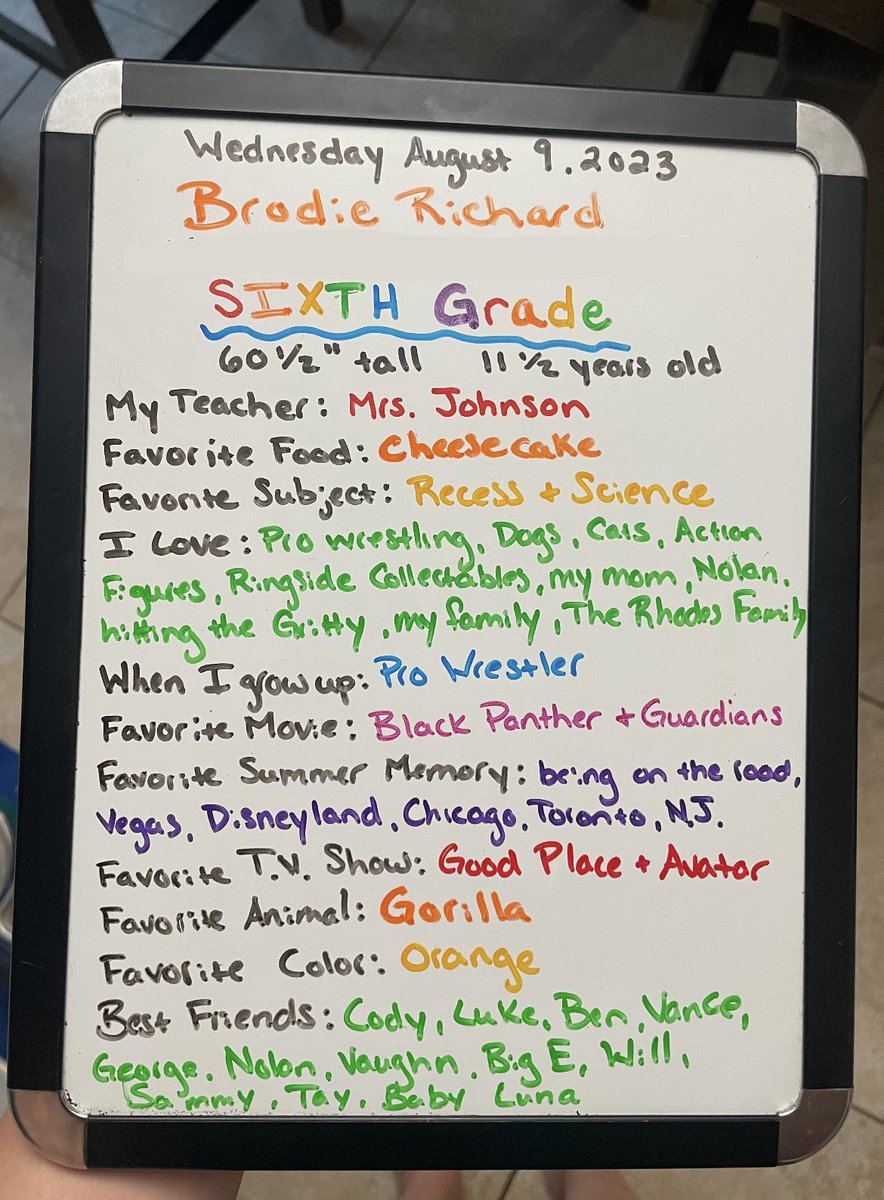 Wednesday August 9, 2023
Brodie Richard
SIXTH Grade
60 1/2" tall 11 1/2 years old
My Teacher: Mrs. Johnson
Favorite Food: Cheesecake
Favorite Subject: Recess + Science
I Love: Pro wrestling, Dogs, Cats, Action
Figures, Ringside Collectables, my mom, Nolan,
hitting the Gritty, my family, The Rhodes Family
When I grow up: Pro Wrestler
Favorite Movie: Black Panther + Guardians
Favorite Summer Memory: being on the road,
Vegas, Disneyland, Chicago, Toronto, N.J.
Favorite T.V. Show: Good Place + Avatar
Favorite Animal: Gorilla
Favorite Color: Orange
Best Friends: Cody, Luke, Ben, Vance,
George, Nolan, Vaughn, Big E, Will,
Sammy, Tay, Baby Luna